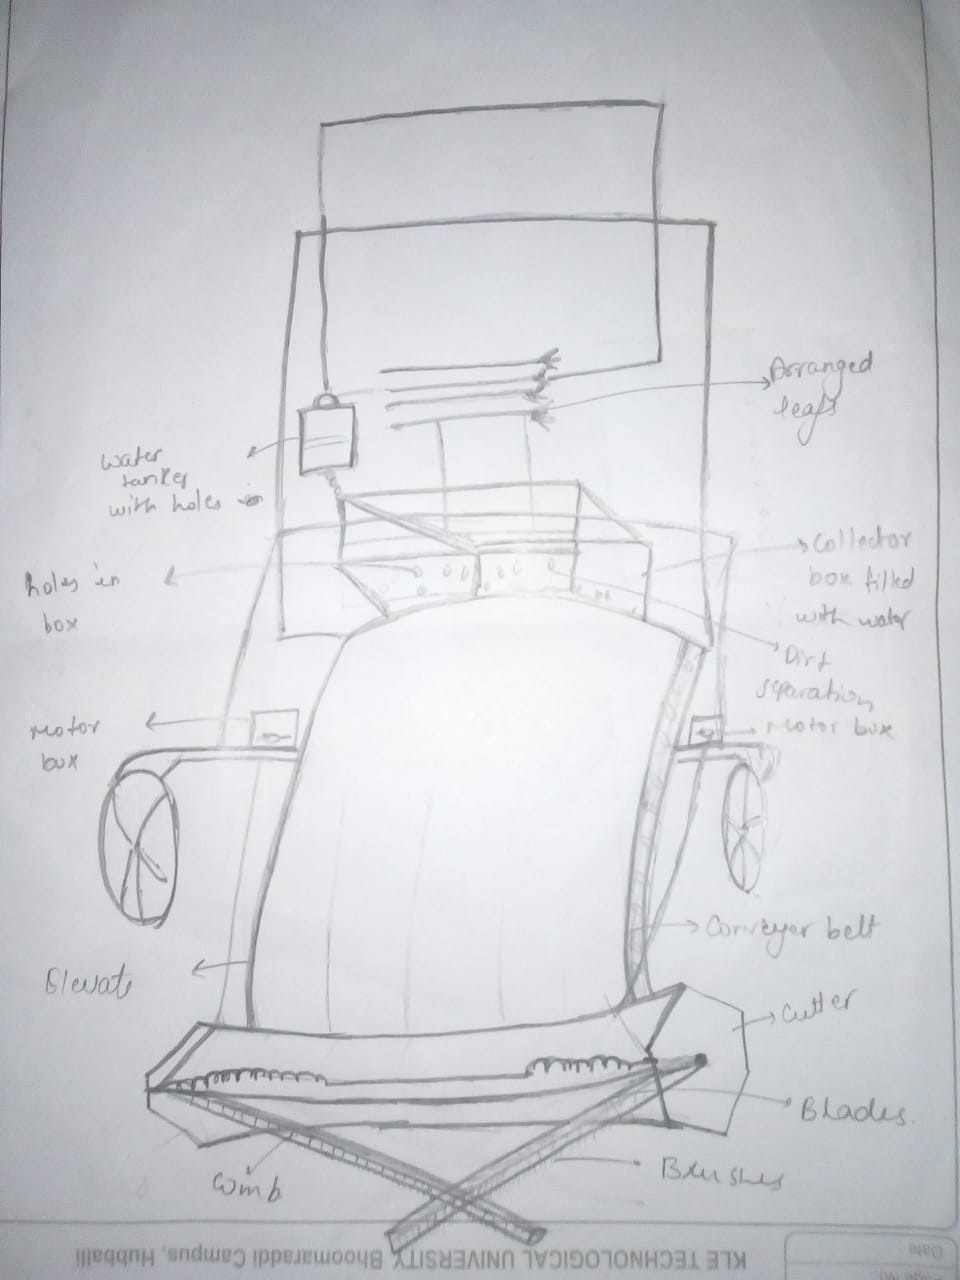 Arranged
leafs
water
tanker
with holes
Collector
box filled
with water
holes in
box
Dirt
separation
Motor box
Motor
box
Conveyor belt
Elevate
Cutter
Blades.
Brushes
Comb
KLE TECHNOLOGICAL UNIVERSITY Bhoomaraddi Campus, Hubballi
Date